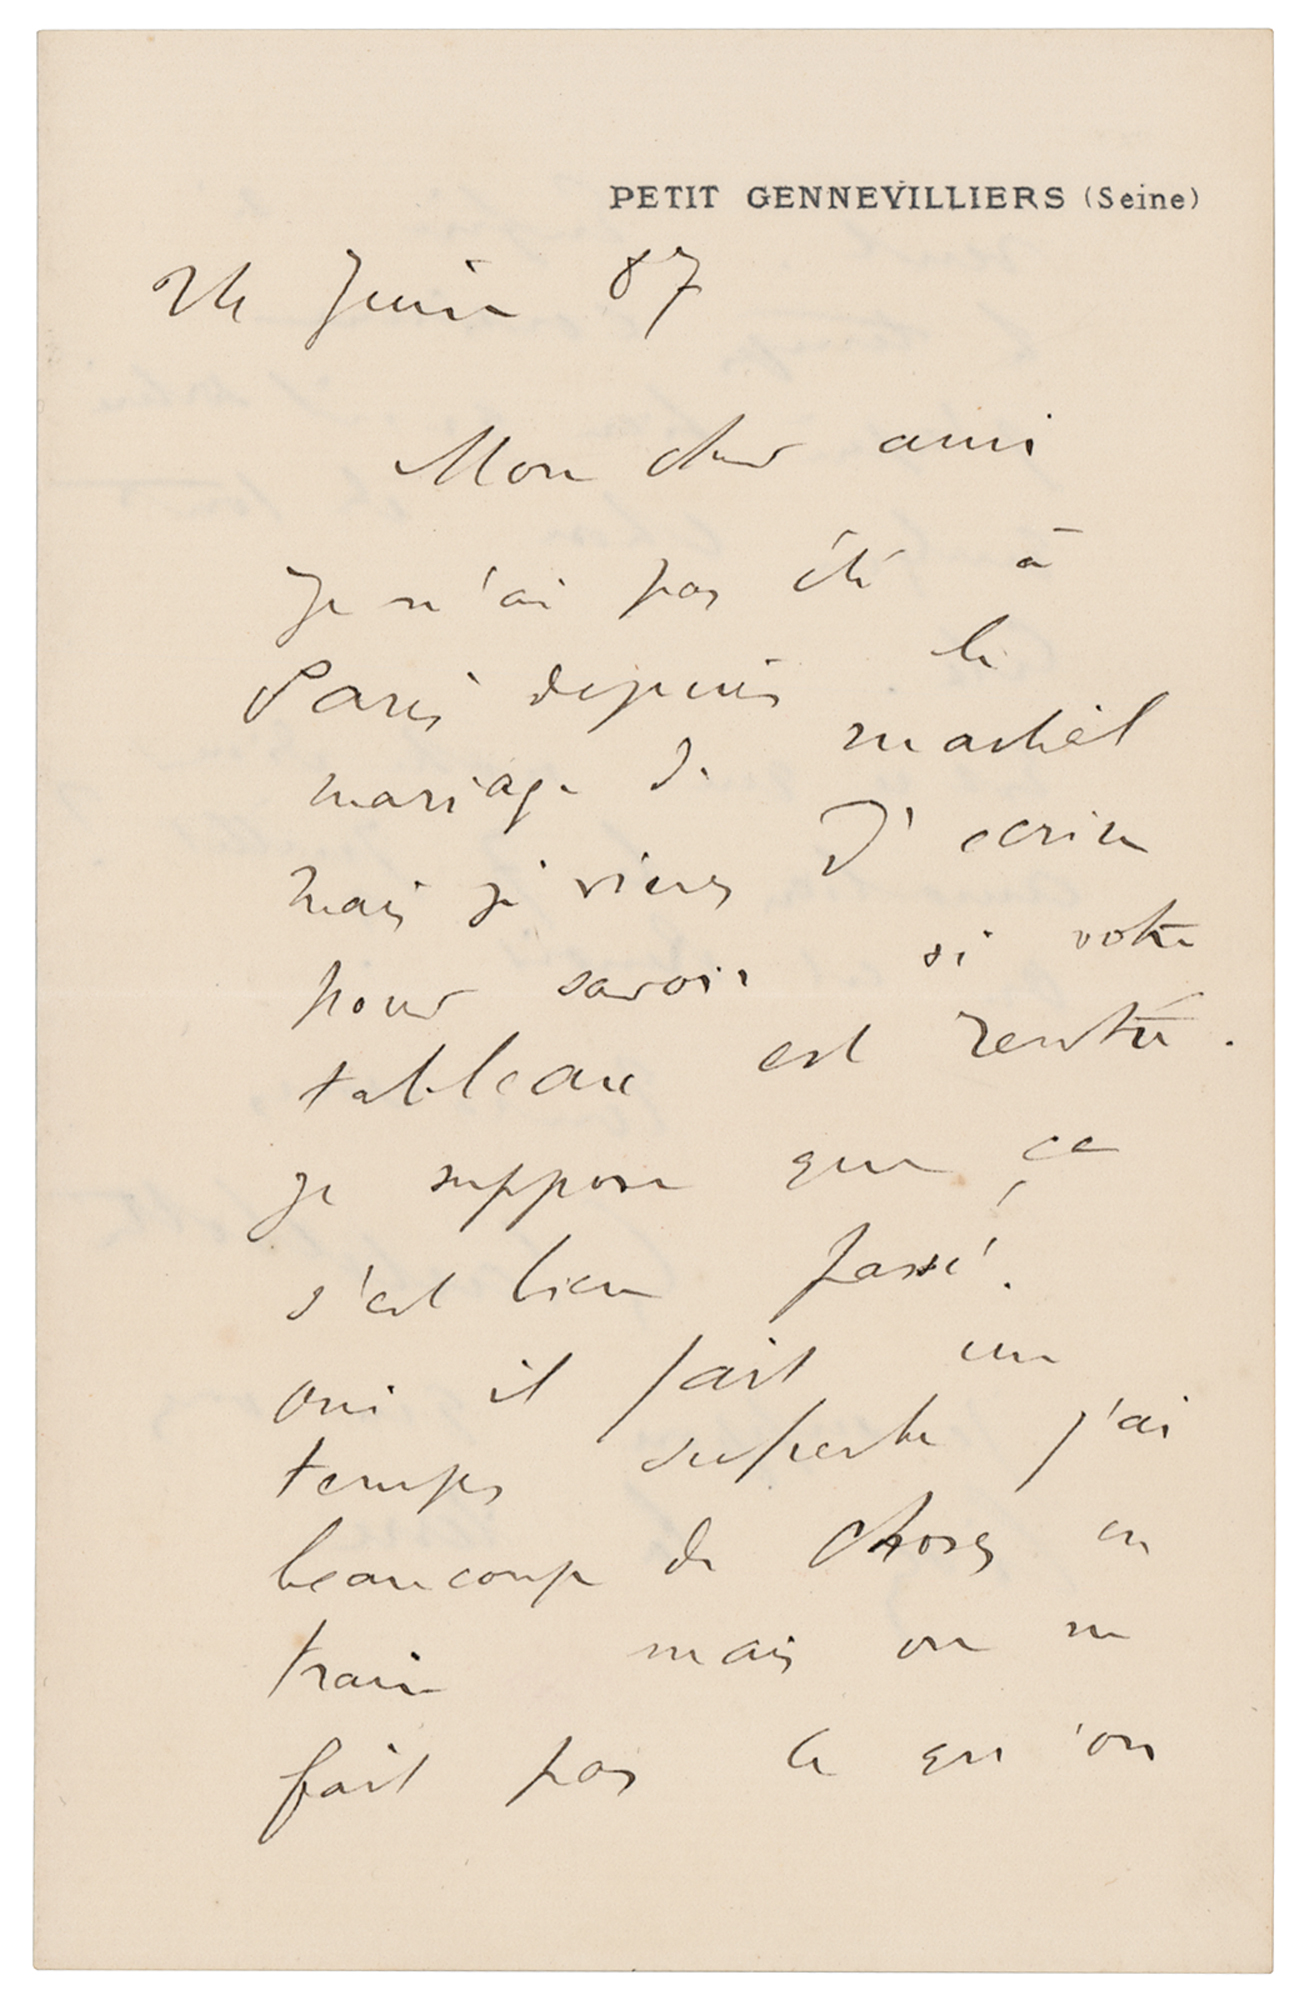 PETIT GENNEVILLIERS (Seine)
24 Juin 87
Mon cher ami
Je n'ai pas été à
Paris depuis le
mariage de martial
mais je viens d'ecrire
pour savoir si votre
tableau est rentré.
je suppose que ça
s'est bien passé.
oui il fait un
temps superbe j'ai
beaucoup de choses en
train mais on ne
fait pas ce qu'on